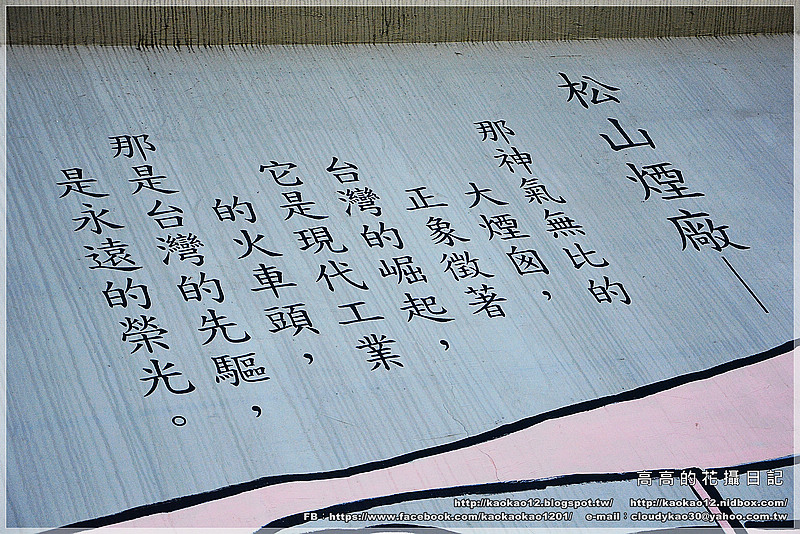 松山煙廠—
那神氣無比的
大煙囪，
正象徵著
台灣的崛起，
它是現代工業
的火車頭，
那是台灣的先驅，
是永遠的榮光。
高高的花攝日記
http://kaokao12.blogspot.tw/ http://kaokao12.nidbox.com/
FB：https://www.facebook.com/kaokaokao1201/ e-mail：cloudykao30@yahoo.com.tw